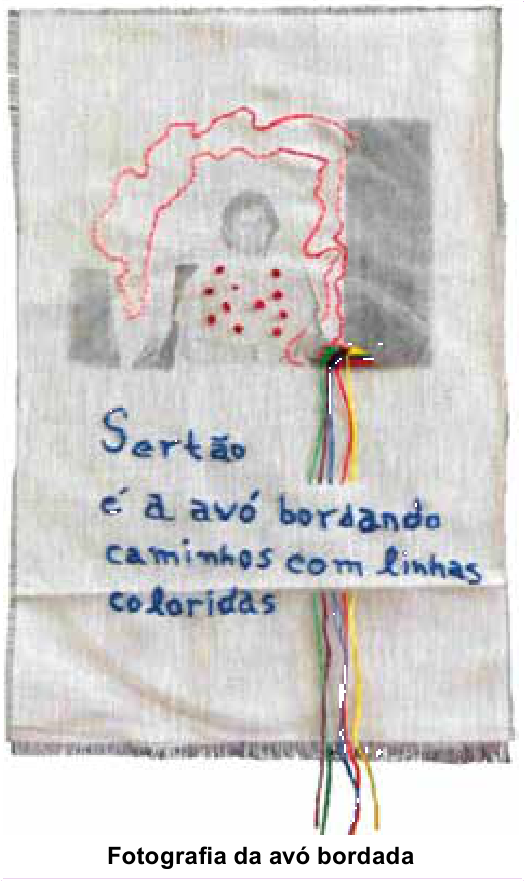 Sertão
é a avó bordando
caminhos com linhas
coloridas
Fotografia da avó bordada